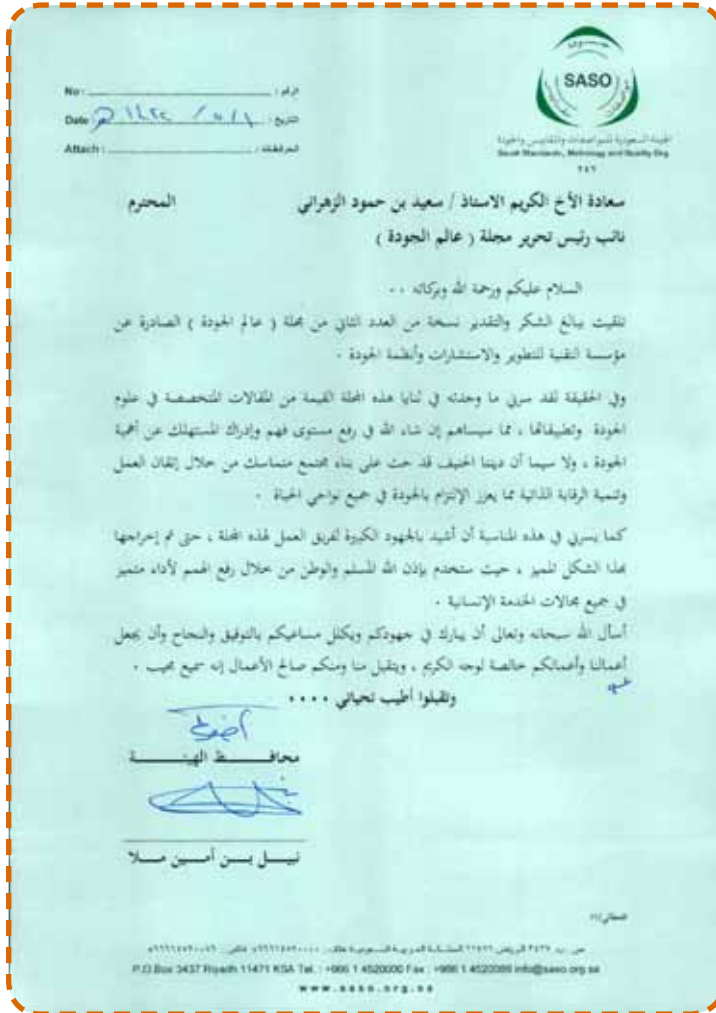 SASO
الهيئة السعودية للمواصفات والمقاييس والجودة
Saudi Standards, Metrology and Quality Org.
٢٤٢
No : الرقم :
Date التاريخ :
Attach : المرفقات :
سعادة الأخ الكريم الاستاذ / سعيد بن حمود الزهراني المحترم
نائب رئيس تحرير مجلة ( عالم الجودة )
السلام عليكم ورحمة الله وبركاته ..
تلقيت ببالغ الشكر والتقدير نسخة من العدد الثاني من مجلة ( عالم الجودة ) الصادرة عن
مؤسسة التقنية للتطوير والاستشارات وأنظمة الجودة .
وفي الحقيقة لقد سرني ما وجدته في ثنايا هذه المجلة القيمة من المقالات المتخصصة في علوم
الجودة وتطبيقاتها ، مما سيساهم إن شاء الله في رفع مستوى فهم وإدراك المستهلك عن أهمية
الجودة ، ولا سيما أن ديننا الحنيف قد حث على بناء مجتمع متماسك من خلال إتقان العمل
وتنمية الرقابة الذاتية مما يعزز الإلتزام بالجودة في جميع نواحي الحياة .
كما يسرني في هذه المناسبة أن أشيد بالجهود الكبيرة لفريق العمل لهذه المجلة ، حتى تم إخراجها
بهذا الشكل المميز ، حيث ستخدم بإذن الله المسلم والوطن من خلال رفع الهمم لأداء متميز
في جميع مجالات الخدمة الإنسانية .
أسأل الله سبحانه وتعالى أن يبارك في جهودكم ويكلل مساعيكم بالتوفيق والنجاح وأن يجعل
أعمالنا وأعمالكم خالصة لوجه الكريم ، ويتقبل منا ومنكم صالح الأعمال إنه سميع مجيب .
وتقبلوا أطيب تحياتي ....
محافــــــظ الهيئــــــــة
نبيــــل بــــن أمــــين مــــلا
P.O.Box 3437 Riyadh 11471 KSA Tel. : +966 1 4520000 Fax : +966 1 4520086 info@saso.org.sa
www.saso.org.sa